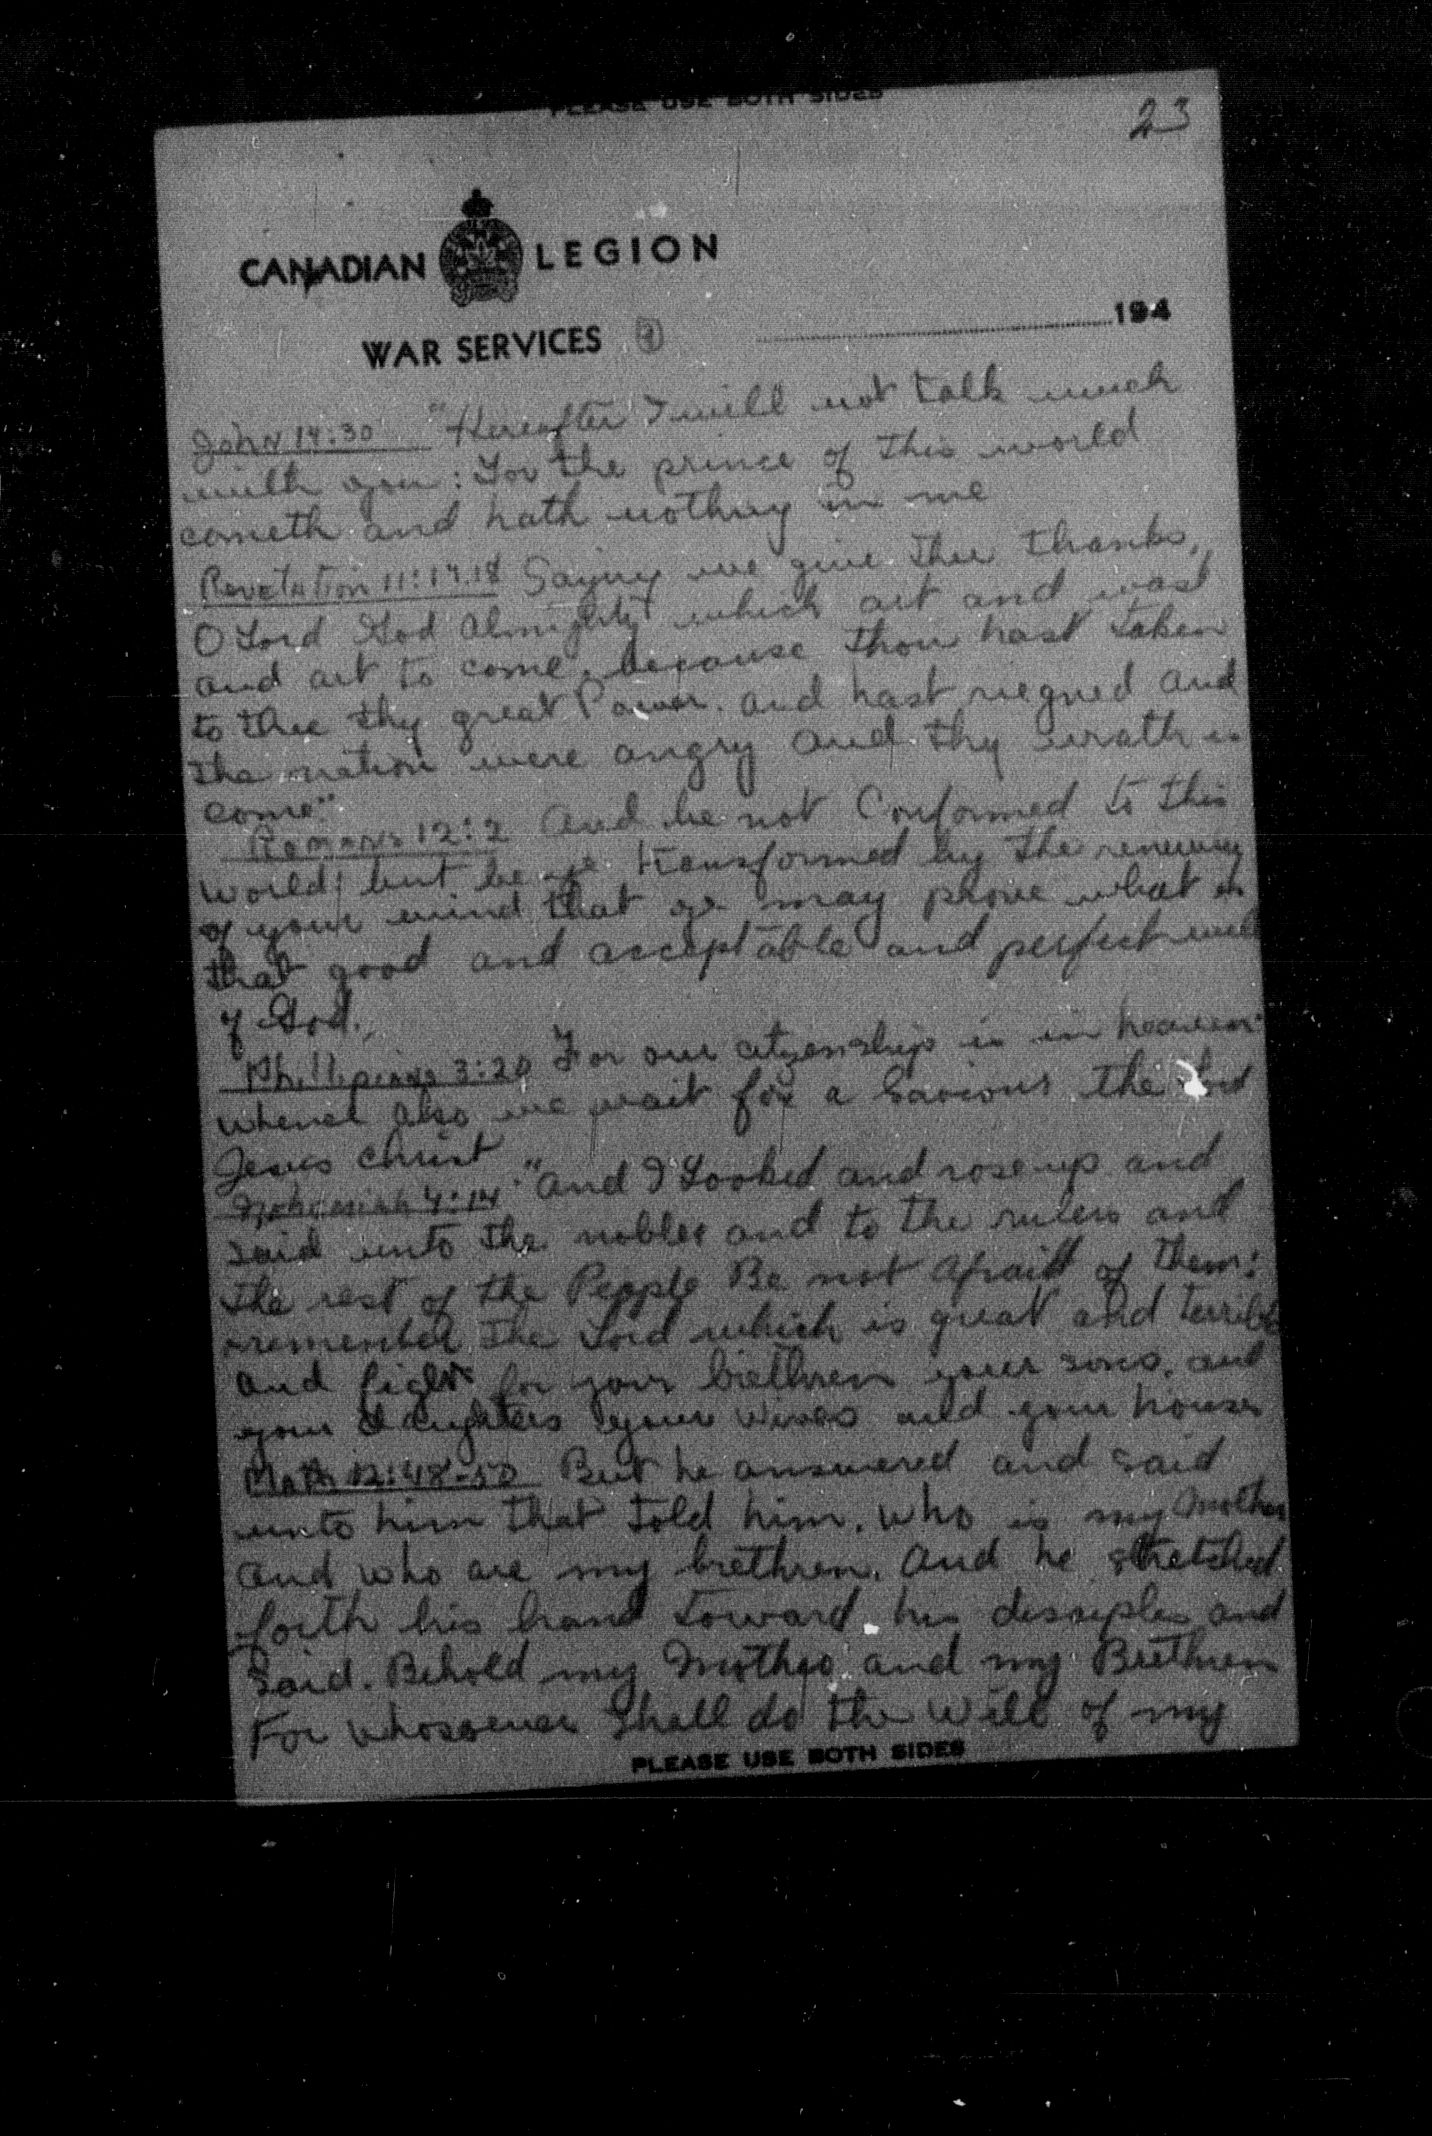 PLEASE USE BOTH SIDES
23
CANADIAN LEGION
WAR SERVICES
194
John 14:30 "Hereafter I will not talk much
with you: For the prince of this world
cometh and hath nothing in me
Revelation 11:17.18 Saying we give thee thanks,
O Lord God Almighty which art and wast
and art to come, because thou hast taken
to thee thy great Power. and hast riegned and
the nation were angry and thy wrath is
come"
Romans 12:2 And be not Conformed to this
World; but be ye transformed by the renewing
of your mind that ye may prove what is
that good and acceptable and perfect will
of God.
Phillipians 3:20 For our citzenship is in heaven
whence also we wait for a Saviour the Lord
Jesus Christ
Nehemiah 4:14 "And I Looked and rose up and
said unto the nobles and to the rulers and
the rest of the People Be not afraid of them:
remember the Lord which is great and terrible
and fight for your brethren your sons, and
your daughters your wives and your houses
Math 12:48-50 But he answered and said
unto him that told him. Who is my Mother
and who are my brethren. And he stretched
forth his hand toward his disciples and
Said. Behold my Mother and my Brethren
For whosoever shall do the Will of my
PLEASE USE BOTH SIDES